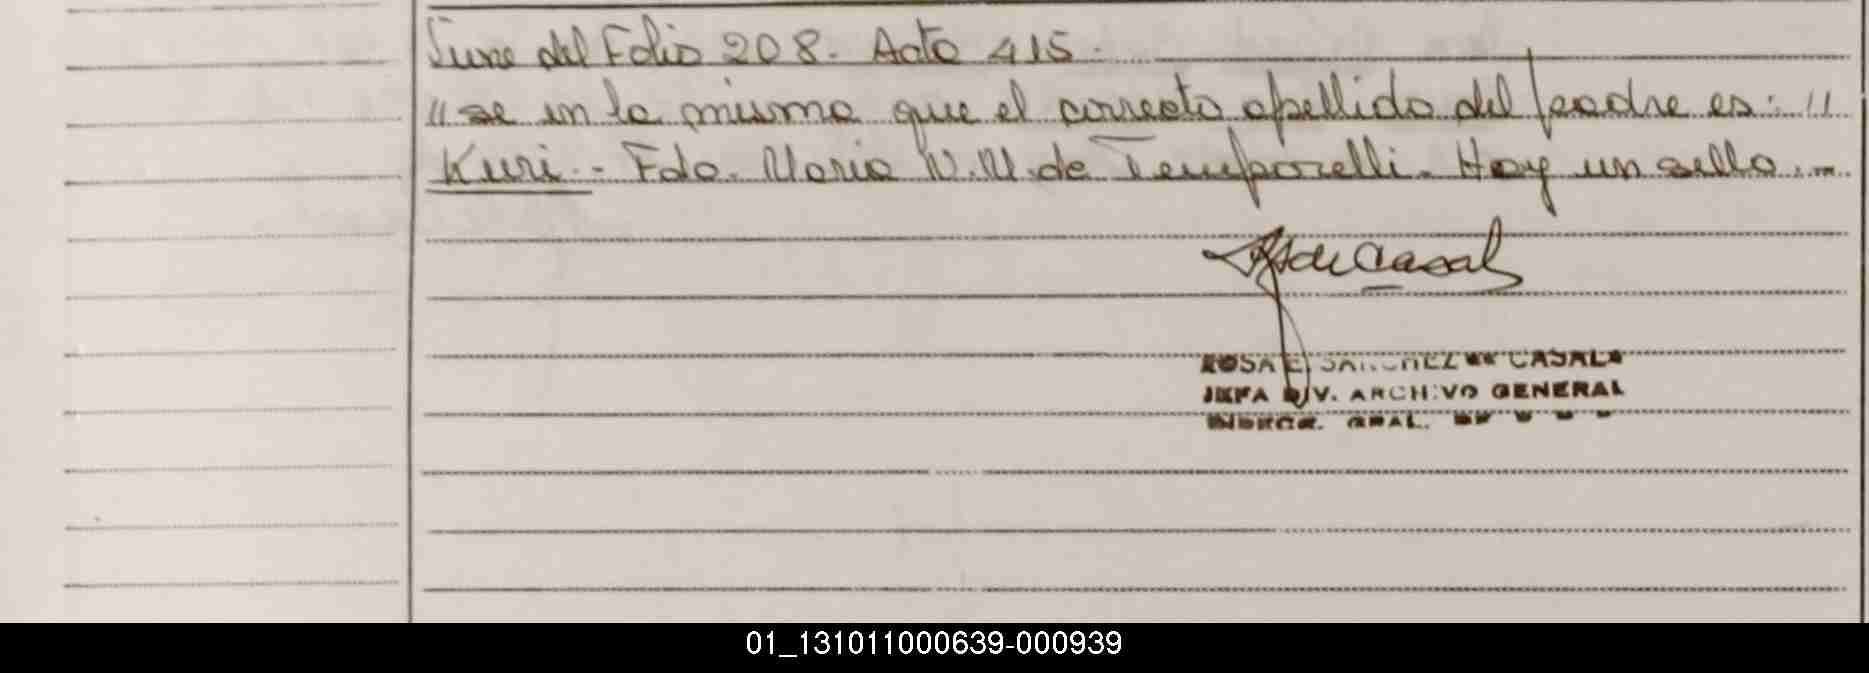 Viene del Folio 208. Acta 415.
"se en la misma que el correcto apellido del padre es: "
Kuri.- Fdo. Maria N.M. de Temporelli. Hay un sello.-
de Casal
ROSA E. SANCHEZ de CASAL
JEFA DIV. ARCHIVO GENERAL
GRAL. DE
01_131011000639-000939